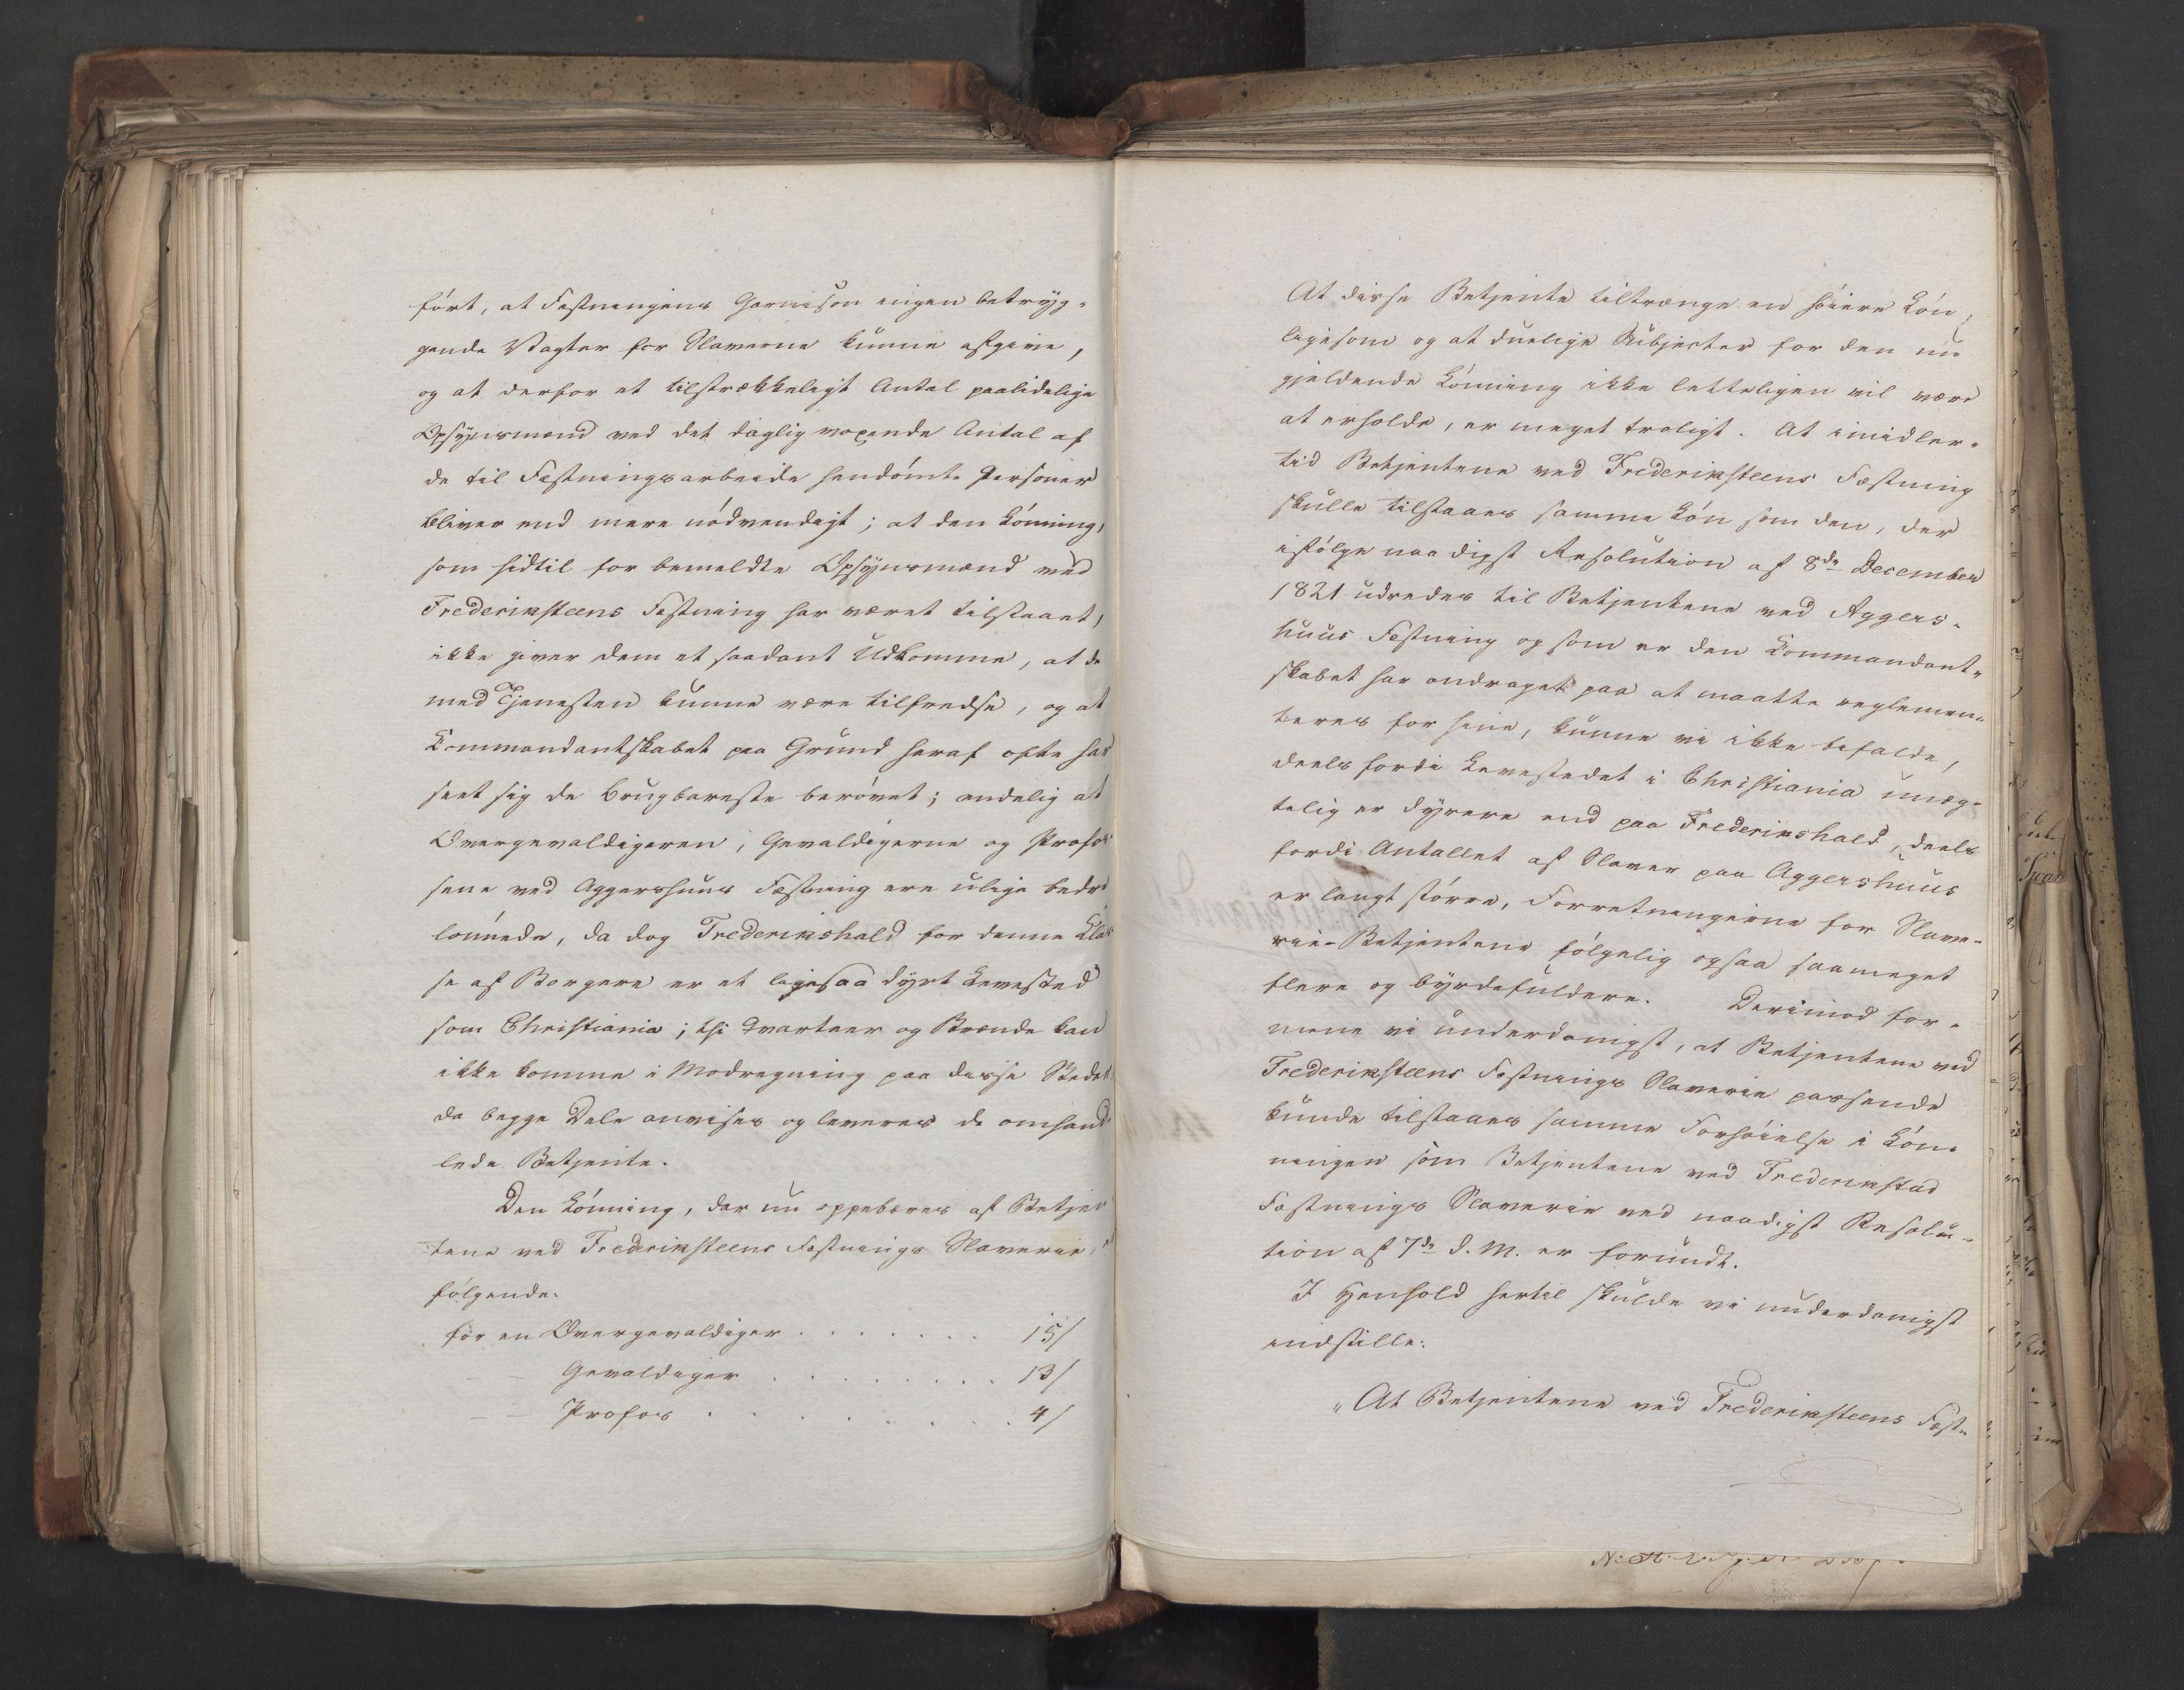 ført, at Fæstningens Garnison ingen betryg-
gende Vagter for Slaverne kunne afgive,
og at derfor et tilstrækkeligt Antal paalidelige
Opsynsmænd ved det daglig voxende Antal af
de til Fæstningsarbeide hendømte Personer
bliver end mere nødvendigt; at den Lønning,
som hidtil for bemeldte Opsynsmænd ved
Frederiksteens Fæstning har været tilstaaet,
ikke giver dem et saadant Udkomme, at de
med Tjenesten kunne være tilfredse, og at
Kommandantskabet paa Grund heraf ofte har
seet sig de brugbareste berøvet; endelig at
Overgevaldigeren, Gevaldigerne og Profos-
sene ved Aggershuus Fæstning ere ulige bedre
lønnede, da dog Frederikshald for denne Klas-
se af Borgere er et ligesaa dyrt Levested
som Christiania; thi Qvarteer og Brænde kan
ikke komme i Modregning paa disse Steder,
da begge Dele anvises og leveres de omhand-
lede Betjente.
Den Lønning, der nu oppebæres af Betjen-
tene ved Frederiksteens Fæstnings Slaverie, er
følgende.
for en Overgevaldiger . . . . . . . 15/
— — Gevaldiger . . . . . . . . 13/
— — Profos . . . . . . . . . 4/
At disse Betjente tiltrænge en høiere Løn,
ligesom og at duelige Subjecter for den nu
gjældende Lønning ikke letteligen vil være
at erholde, er meget troligt. At imidler-
tid Betjentene ved Frederiksteens Fæstning
skulle tilstaaes samme Løn som den, der
ifølge naadigst Resolution af 8de December
1821 udredes til Betjentene ved Aggers-
huus Fæstning og som er den Kommandant-
skabet har andraget paa at maatte reglemen-
teres for sine, kunne vi ikke befalde,
deels fordi Levestedet i Christiania unæg-
telig er dyrere end paa Frederikshald, deels
fordi Antallet af Slaver paa Aggershuus
er langt større, Forretningerne for Slave-
rie-Betjentene følgelig ogsaa saameget
flere og byrdefuldere. Derimod for-
mene vi underdanigst, at Betjentene ved
Frederiksteens Fæstnings Slaverie passende
kunde tilstaaes samme Forhøielse i Løn-
ningen som Betjentene ved Frederikstad
Fæstnings Slaverie ved naadigst Resolu-
tion af 7de d. M. er forundt.
I Henhold hertil skulde vi underdanigst
indstille:
"At Betjentene ved Frederiksteens Fæst-